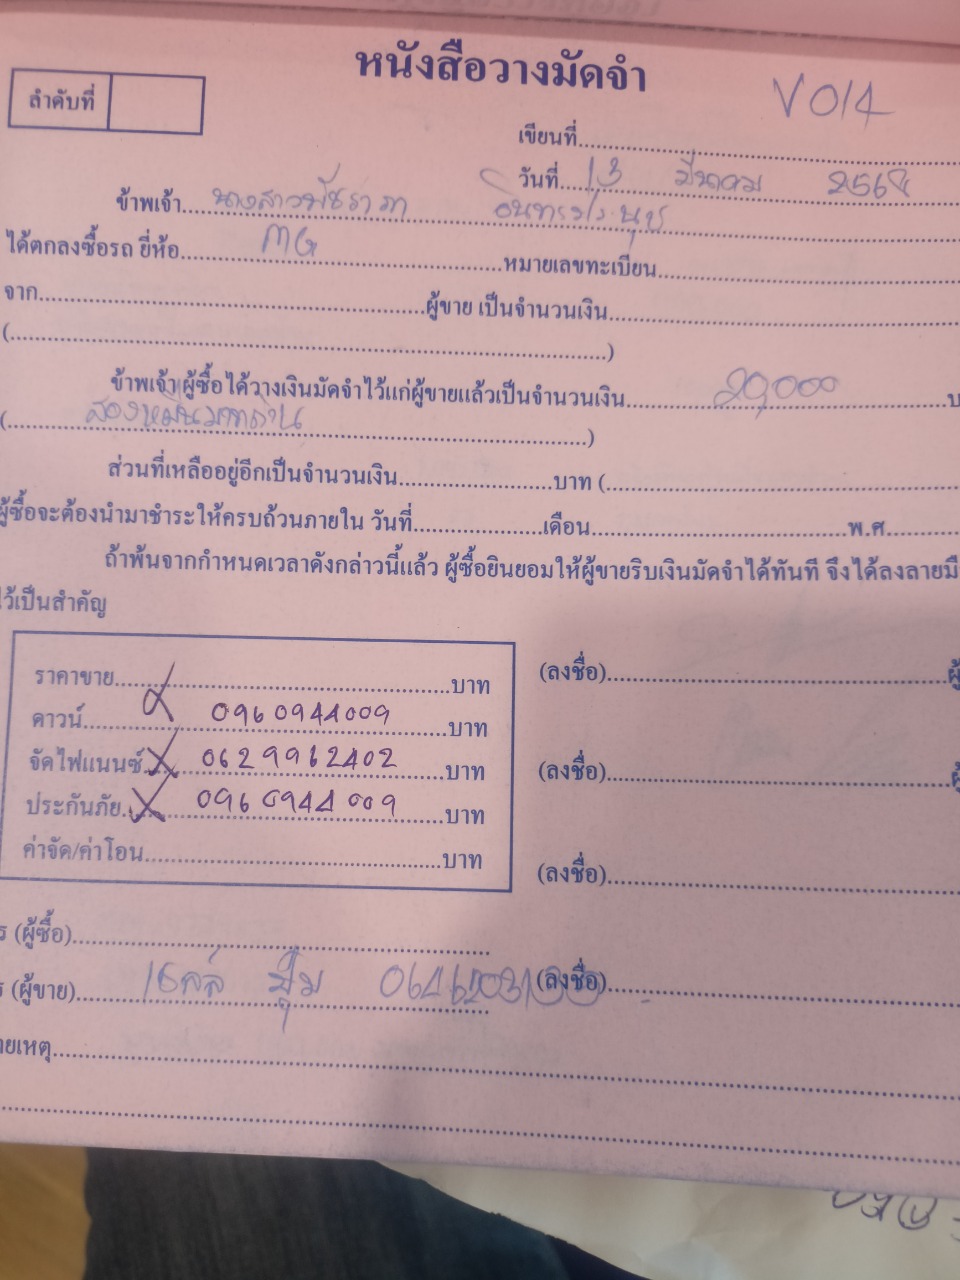 หนังสือวางมัดจำ
V014
ลำดับที่
เขียนที่
วันที่ 13 มีนาคม 2568
ข้าพเจ้า นางสาวพัชราภา อินทรประนุช
ได้ตกลงซื้อรถ ยี่ห้อ MG หมายเลขทะเบียน
จาก ผู้ขาย เป็นจำนวนเงิน
( )
ข้าพเจ้า ผู้ซื้อได้วางเงินมัดจำไว้แก่ผู้ขายแล้วเป็นจำนวนเงิน 20,000
( สองหมื่นบาทถ้วน )
ส่วนที่เหลืออยู่อีกเป็นจำนวนเงิน บาท (
ผู้ซื้อจะต้องนำมาชำระให้ครบถ้วนภายใน วันที่ เดือน พ.ศ.
ถ้าพ้นจากกำหนดเวลาดังกล่าวนี้แล้ว ผู้ซื้อยินยอมให้ผู้ขายริบเงินมัดจำได้ทันที จึงได้ลงลายมือ
ไว้เป็นสำคัญ
ราคาขาย บาท
ดาวน์ 0960944009 บาท
จัดไฟแนนซ์ X 0629962402 บาท
ประกันภัย X 0960944009 บาท
ค่าจัด/ค่าโอน บาท
(ลงชื่อ)
(ลงชื่อ)
(ลงชื่อ)
(ลงชื่อ)
ร (ผู้ซื้อ)
ร (ผู้ขาย) เซลล์ ปุ้ม
ายเหตุ